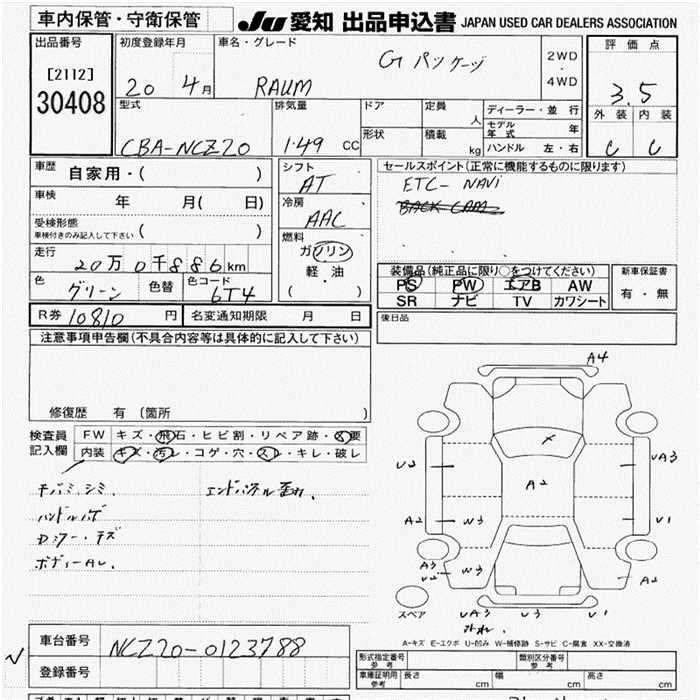 車内保管・守衛保管
JU 愛知 出品申込書 JAPAN USED CAR DEALERS ASSOCIATION
出品番号
[2112]
30408
初度登録年月
20 4月
車名・グレード
RAUM Gパッケージ
2WD
・
4WD
評価点
3.5
外装 内装
C C
型式
CBA-NCZ20
排気量
1.49 CC
ドア
形状
定員
人
積載
kg
ディーラー・並行
モデル年式 年
ハンドル 左・右
車歴 自家用・( )
車検 年 月( 日)
受検形態
車検付きのみ記入して下さい ( )
走行
20万0千886km
色
グリーン
色替
色コード
6T4
シフト
AT
冷房
AAC
燃料
ガソリン
軽・油
( )
セールスポイント(正常に機能するものに限ります)
ETC- NAVi
BACK CAM
装備品(純正品に限り○をつけてください)
PS PW エアB AW
SR ナビ TV カワシート
新車保証書
有・無
R券 10810 円
名変通知期限 月 日
後日品
注意事項申告欄(不具合内容等は具体的に記入して下さい)
修復歴 有(箇所 )
検査員
記入欄
FW キズ・飛石・ヒビ割・リペア跡・要
内装 キズ・汚レ・コゲ・穴・スレ・キレ・破レ
シミ.
ハンドル
ボディーAL.
A4
U2
A2
UA3
A2 W3
U1
A3
U2 W3
A2
スペア
UA3 U3 U1
A-キズ E-エクボ U-凹み W-補修跡 S-サビ C-腐食 XX-交換済
車台番号
NCZ20-0123788
登録番号
形式指定番号
参考
類別区分番号
参考
車庫証明用
参考
長さ cm
幅 cm
高さ cm